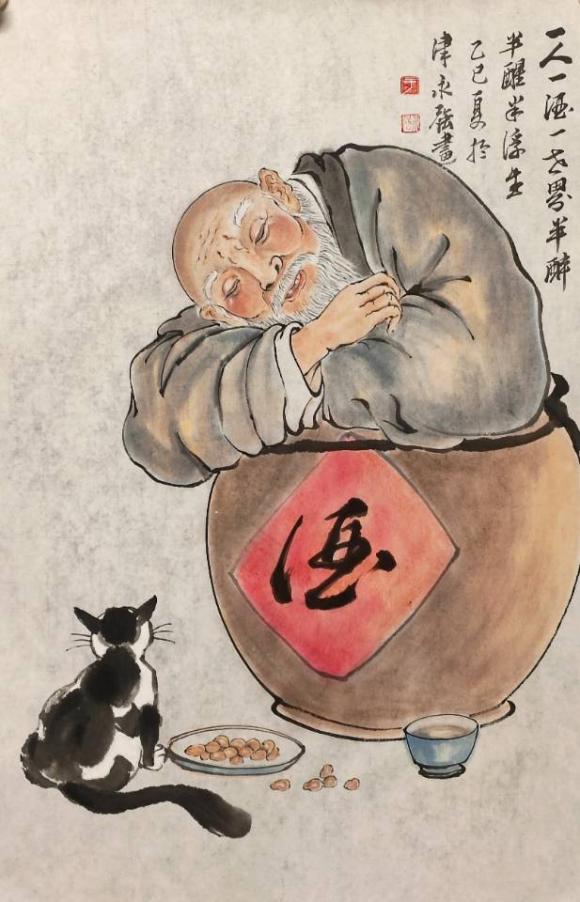 一人一酒一世界半醉
半醒半浮生
乙巳夏於
津永強畫
酒